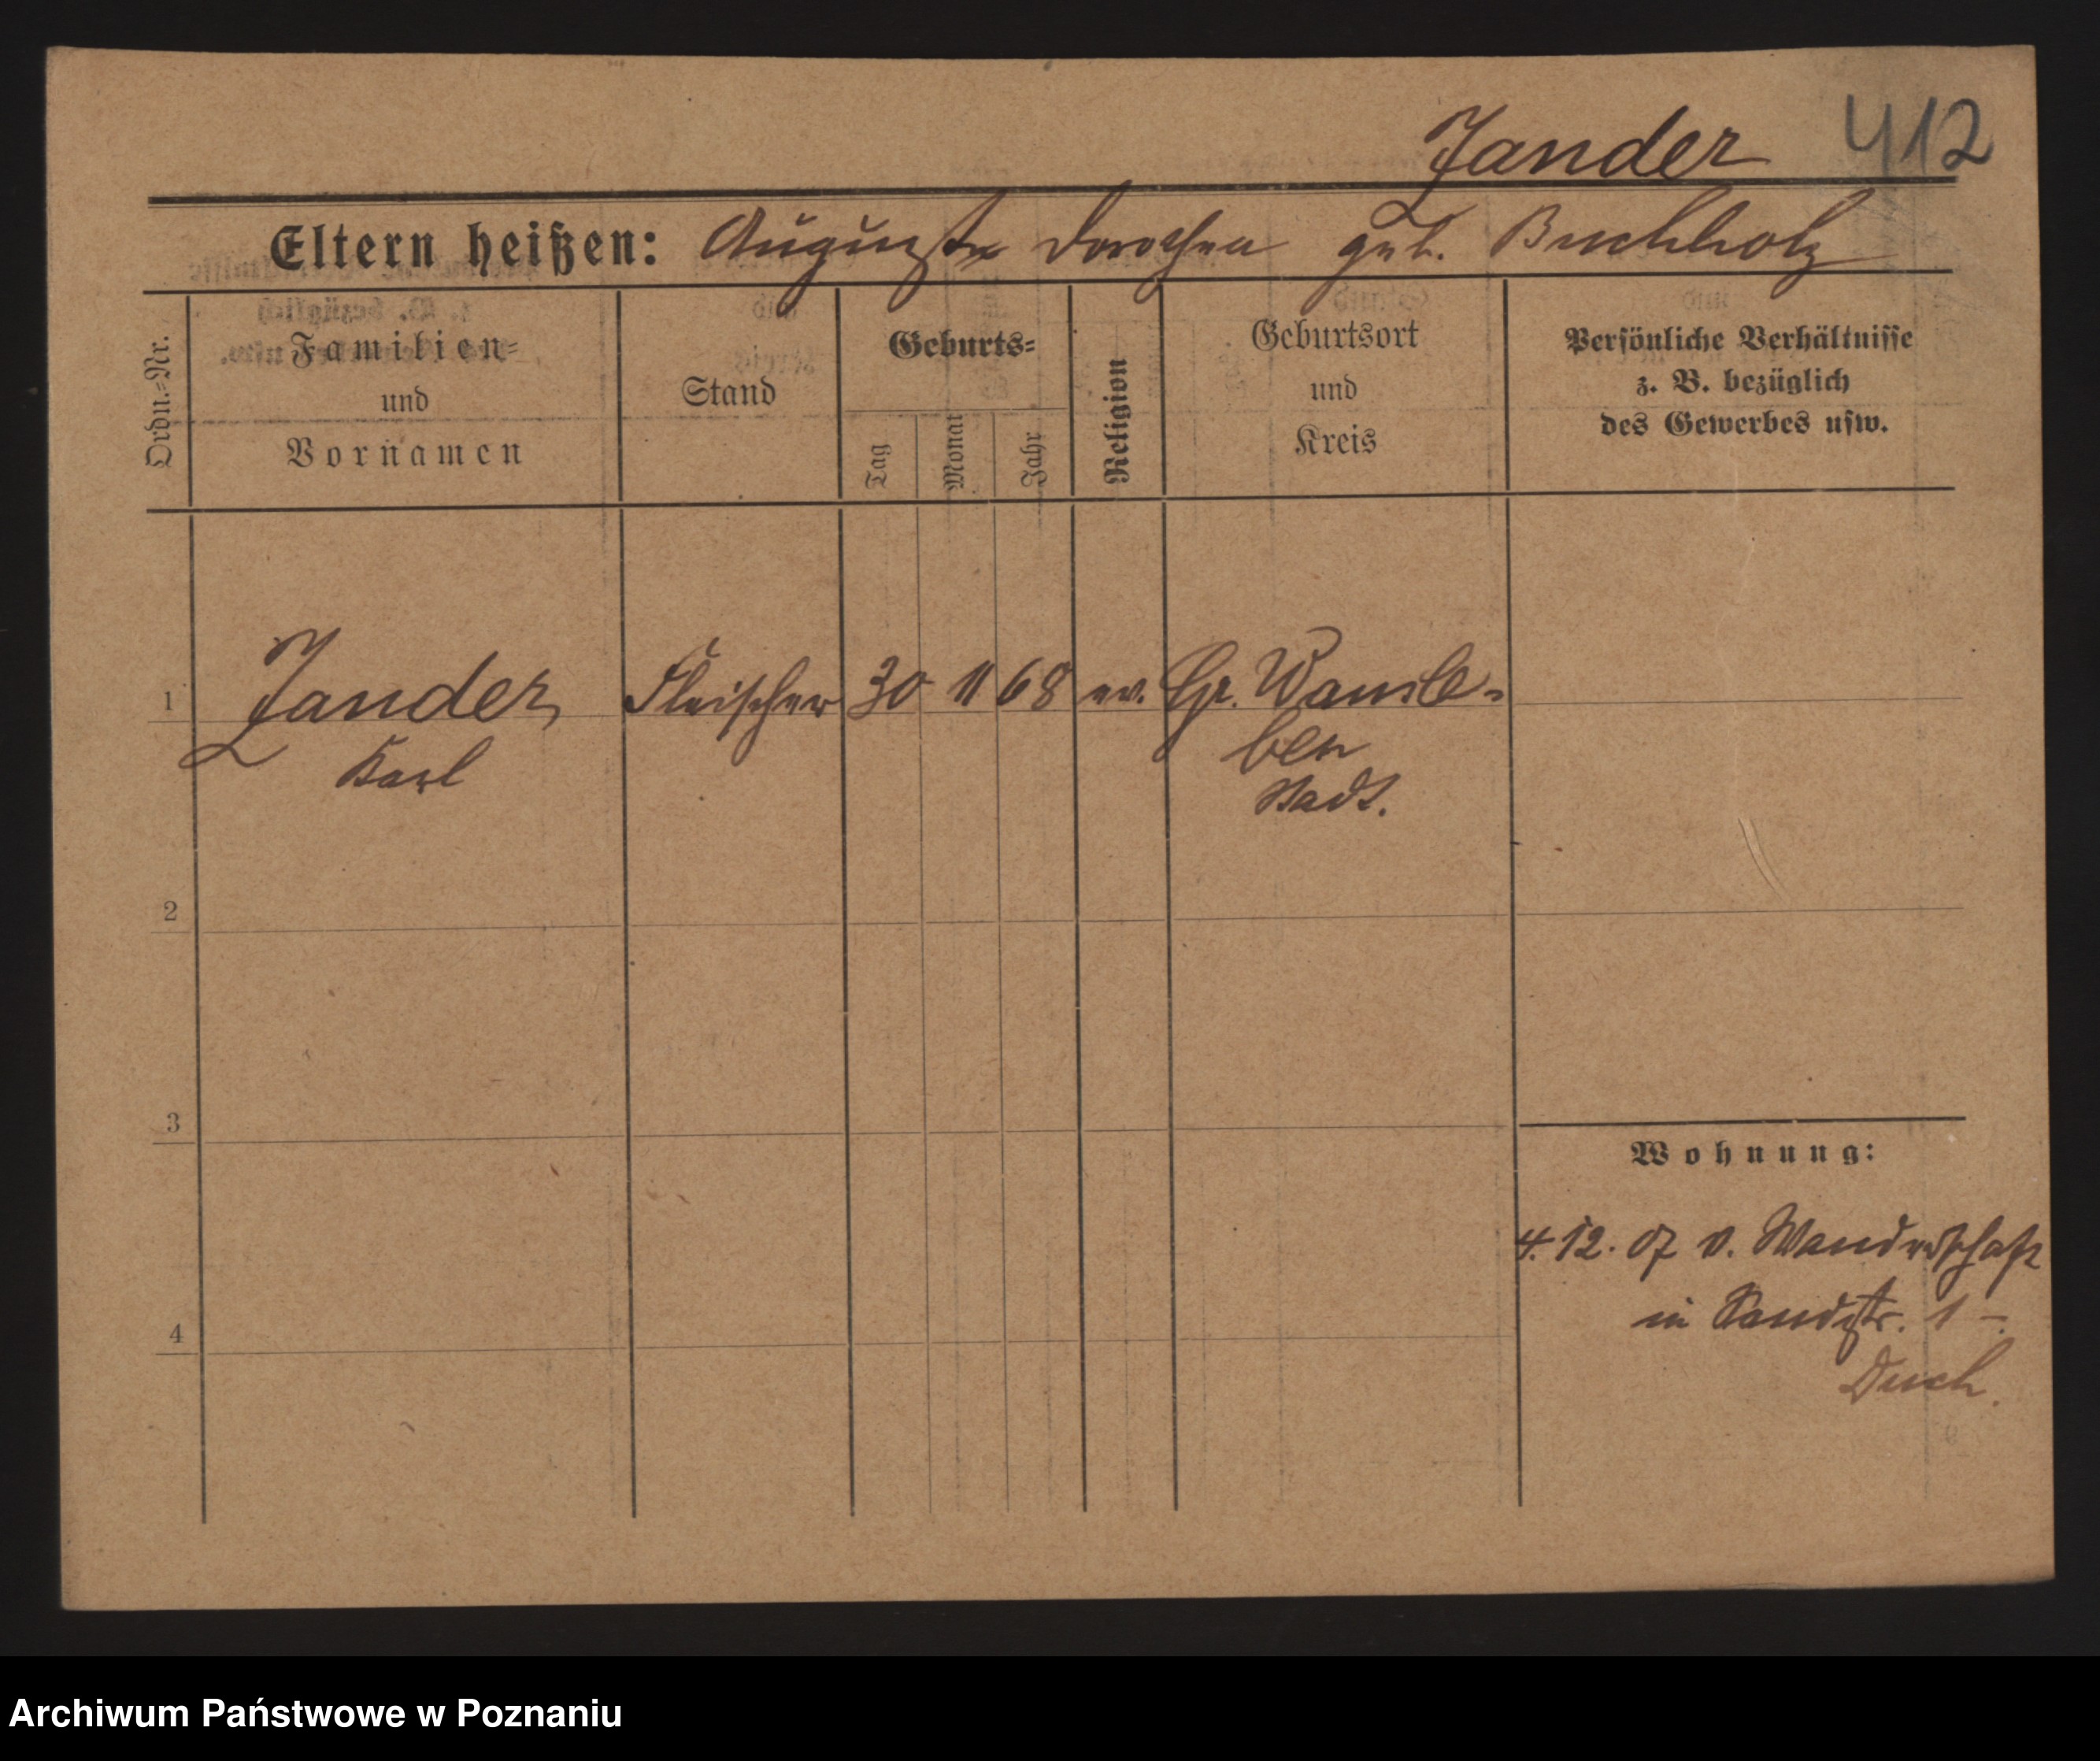 Zander 412
Eltern heißen: August u Dorothea geb. Buchholz
Ordn.=Nr.
Familien=
und
Vornamen
Stand
Geburts=
Tag
Monat
Jahr
Religion
Geburtsort
und
Kreis
Persönliche Verhältnisse
z. B. bezüglich
des Gewerbes usw.
1 Zander, Fleischer 30 11 68 ev. Gr. Wansle-
Karl
ben
Stadt.
2
3
4
Wohnung:
4. 12. 07 v. Wanderschaft
in Sandstr. 1 –
Archiwum Państwowe w Poznaniu